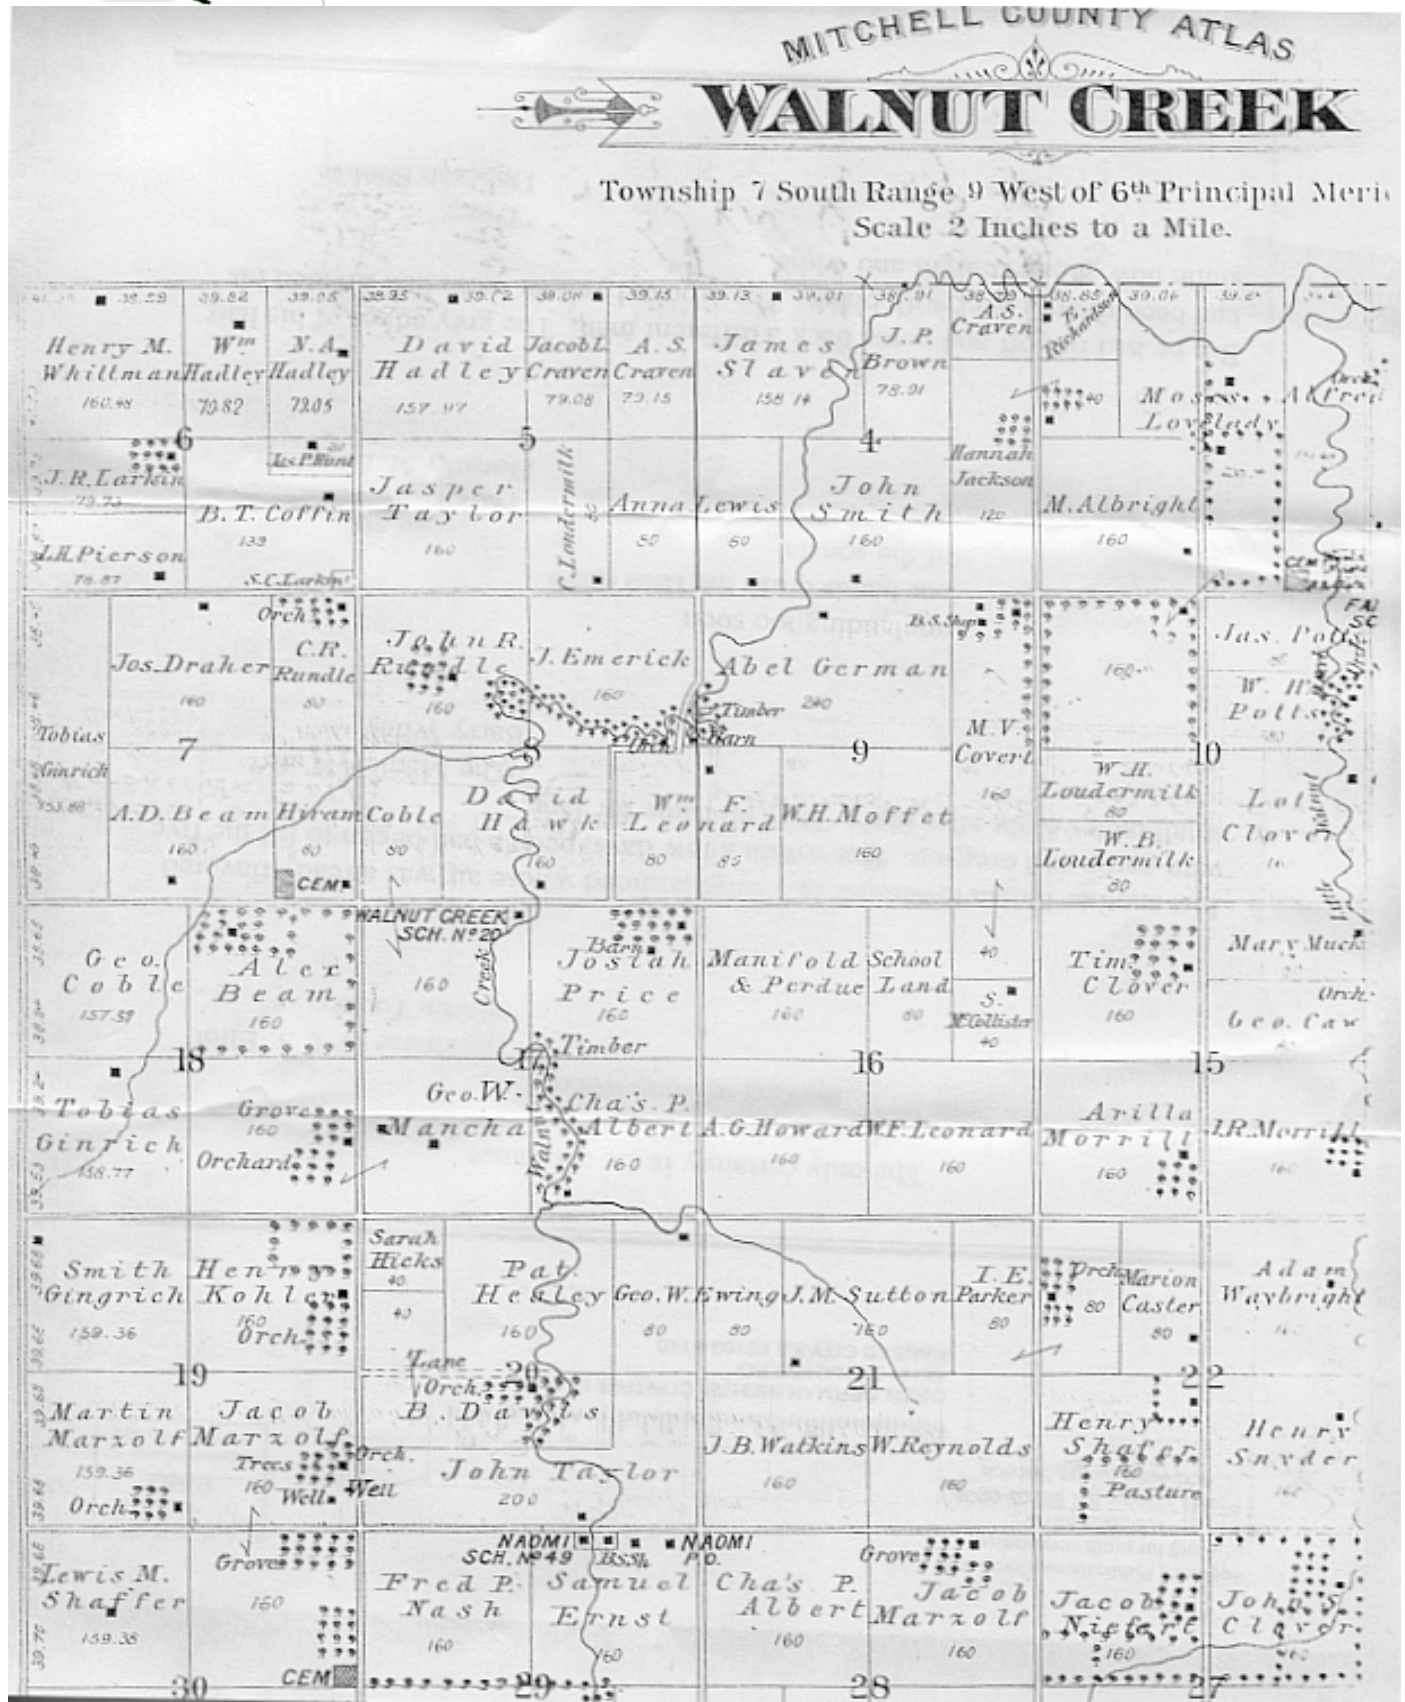 MITCHELL COUNTY ATLAS
WALNUT CREEK
Township 7 South Range 9 West of 6th Principal Meri
Scale 2 Inches to a Mile.
39.82 39.05 38.95 39.08 39.15 39.13 39.01 38.91 38.85 39.06
Henry M. Whittman 160.48
Wm Hadley 79.82
N.A. Hadley 79.05
David Hadley 157.97
Jacob L. Craven 79.08
A.S. Craven 79.15
James Slaven 158.14
J.P. Brown 78.91
A.S. Craven
E. Richardson
40
Moses Lovelady
Alfred
Orch.
6
5
4
J.R. Larkin 79.73
Jas. P. Hunt
L.H. Pierson 78.87
B.T. Coffin 139
S.C. Larkin
Jasper Taylor 160
C. Loudermilk 80
Anna Lewis
80
80
John Smith 160
Hannah Jackson 120
M. Albright 160
CEM
Tobias Ginrich 153.88
Jos. Draher 160
Orch
C.R. Rundle 80
John R. Rundle 160
J. Emerick 160
Orch
Abel German 240
Timber
Barn
B.S. Shop
M.V. Covert 160
160
Jas. Potts 80
W.H. Potts 80
7
8
9
10
A.D. Beam 160
Hiram Coble
80
80
CEM.
David Hawk 160
Wm Leonard 80
F. Leonard 80
W.H. Moffet 160
W.H. Loudermilk 80
W.B. Loudermilk 80
Lot Clover
Little Walnut
WALNUT CREEK
SCH. No 20
Geo. Coble 157.59
Alex Beam 160
160
Creek
Barn
Josiah Price 160
Timber
Manifold & Perdue 160
School Land 80
40
S. McCollister 40
Tim. Clover 160
Mary Muck
Orch.
Geo. Caw
18
17
16
15
Tobias Ginrich 158.77
Grove
160
Orchard
Geo. W. Mancha
Walnut
Cha's. P. Albert 160
A.G. Howard 160
W.F. Leonard 160
Arilla Morrill 160
J.R. Morrill 160
Smith Gingrich 159.36
Henry Kohler 160
Orch.
Sarah Hicks 40
40
Pat. Healey 160
Geo. W. Ewing
80
80
J.M. Sutton 160
I.E. Parker 80
Orch
80
Marion Caster 80
Adam Waybright
19
20
21
22
Lane
Orch.
B. Davis
Martin Marzolf 159.36
Orch.
Jacob Marzolf 160
Trees
Well
Orch.
Well
John Taylor 200
J.B. Watkins 160
W. Reynolds 160
Henry Shafer 160
Pasture
Henry Snyder 160
NAOMI
SCH. No 49
B.S.Sh
NAOMI
P.O.
Lewis M. Shaffer 159.38
Grove
160
CEM
Fred P. Nash 160
Samuel Ernst 160
Cha's P. Albert 160
Grove
Jacob Marzolf 160
Jacob Niefert 160
John S. Clover 160
30
29
28
27